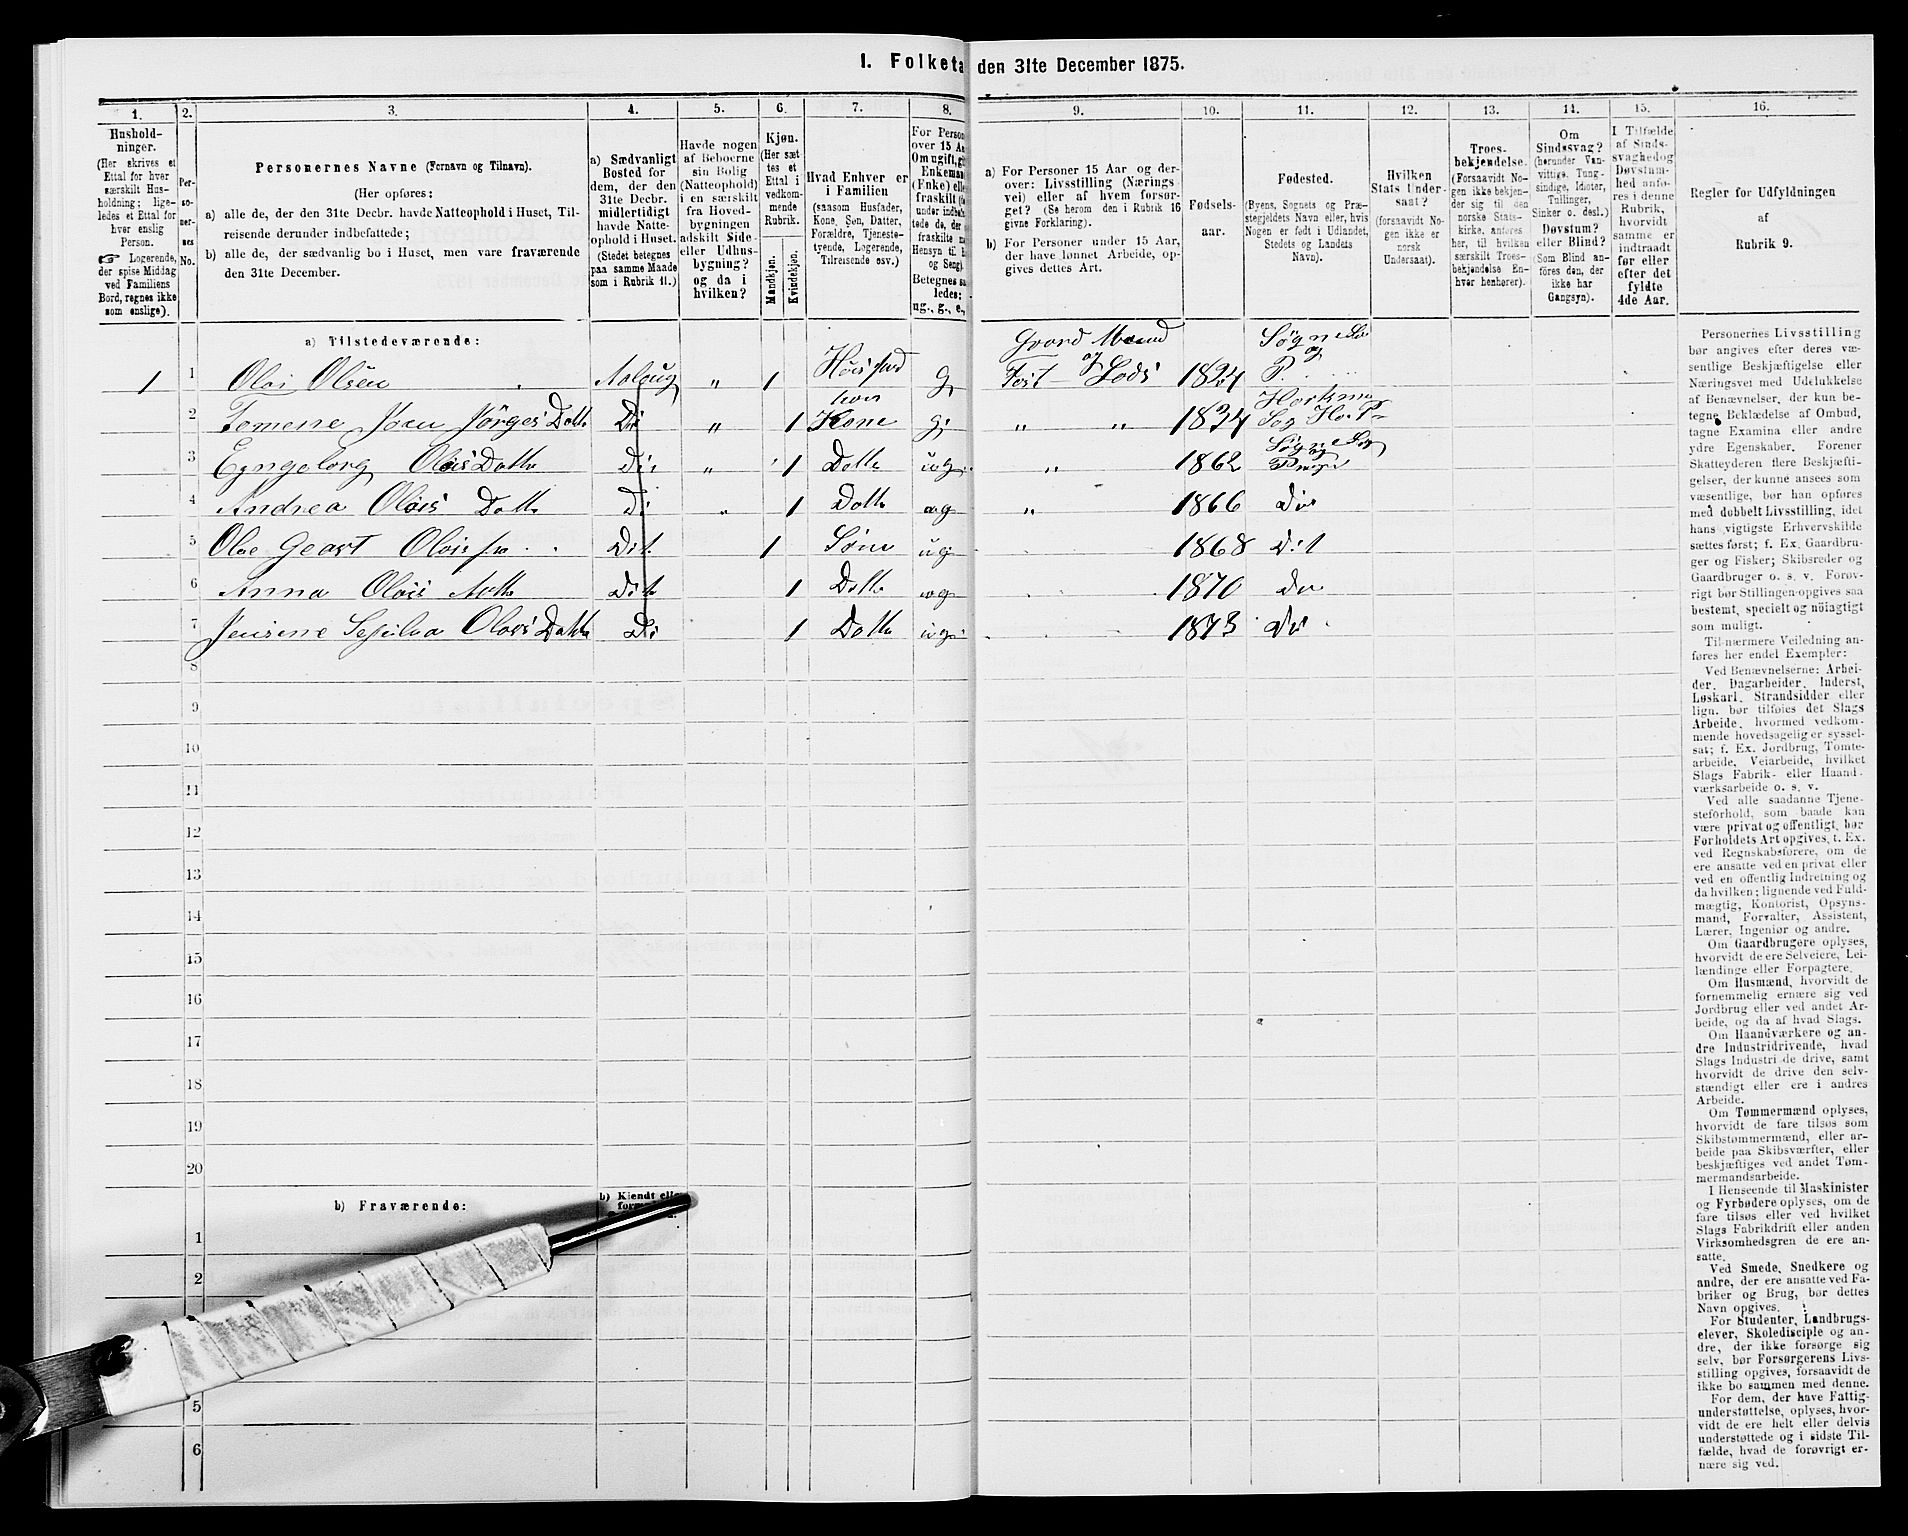 I. Folketa
den 31te December 1875.
1.
Hushold-
ninger.
(Her skrives et
Ettal for hver
særskilt Hus-
holdning; lige-
ledes et Ettal for
hver enslig
Person.
☞ Logerende,
der spise Middag
ved Familiens
Bord, regnes ikke
som enslige).
2.
Per-
so-
ner-
nes
No.
3.
Personernes Navne (Fornavn og Tilnavn).
(Her opføres:
a) alle de, der den 31te Decbr. havde Natteophold i Huset, Til-
reisende derunder indbefattede;
b) alle de, der sædvanlig bo i Huset, men vare fraværende
den 31te December.
4.
a) Sædvanligt
Bosted for
dem, der den
31te Decbr.
midlertidigt
havde Natte-
ophold i Huset.
(Stedet betegnes
paa samme Maade
som i Rubrik 11.)
5.
Havde nogen
af Beboerne
sin Bolig
(Natteophold)
i en særskilt
fra Hoved-
bygningen
adskilt Side-
eller Udhus-
bygning?
og da i
hvilken?
6.
Kjøn.
(Her sæt
tes et
Ettal i
vedkom-
mende
Rubrik.
Mandkjøn.
Kvindekjøn.
7.
Hvad Enhver er
i Familien
(saasom Husfader,
Kone, Søn, Datter,
Forældre, Tjeneste-
tyende, Logerende,
Tilreisende osv.)
8.
For Person
over 15 Aa
Om ugift, gi
Enkeman
(Enke) elle
fraskilt (fo
under indbe
tede de, der
fraskilte m
Hensyn til B
og Seng).
Betegnes saa
ledes:
ug., g., e.,
9.
a) For Personer 15 Aar og der-
over: Livsstilling (Nærings
vei) eller af hvem forsør-
get? (Se herom den i Rubrik 16
givne Forklaring).
b) For Personer under 15 Aar,
der have lønnet Arbeide, op-
gives dettes Art.
10.
Fødsels-
aar.
11.
Fødested.
(Byens, Sognets og Præ-
stegjeldets Navn eller, hvis
Nogen er født i Udlandet,
Stedets og Landets
Navn).
12.
Hvilken
Stats Under-
saat?
(forsaavidt No-
gen ikke er
norsk
Undersaat).
13.
Troes-
bekjendelse.
(Forsaavidt No-
gen ikke bekjen-
der sig til den
norske Stats-
kirke, anføres
her, til hvilken
særskilt Troes-
bekjendelse En-
hver henhører).
14.
Om
Sindssvag?
(herunder Van-
vittige, Tung-
sindige, Idioter,
Tullinger,
Sinker o. desl.)
Døvstum?
eller Blind?
(Som Blind an-
føres den, der
ikke har
Gangsyn).
15.
I Tilfælde
af Sinds-
svaghed og
Døvstum-
hed anfø-
res i denne
Rubrik,
hvorvidt
samme er
indtraadt
før eller
efter det
fyldte
4de Aar.
16.
Regler for Udfyldningen
af
Rubrik 9.
a) Tilstedeværende:
1 1 Olai Olsen „ 1 g Gaard Mand og Fast Lods 1824 Søgne So og P.
2 Tomene Jørges Datt Do „ 1 hans Kone g „ „ 1834 Sog P
3 Eyngeborg Olais Datte Dit „ 1 Datte ug „ 1862 Søgne Sog og
4 Andrea Olais Datte Do „ 1 Datte ug „ 1866 Dit
5 Olae Geart Olais Dit 1 Sønn ug 1868 Dit
6 Anna Olais Datte Dito 1 Datte ug 1870 Do
7 Jensine Olais Datte Do 1 Datte ug 1873 Do
8
9
10
11
12
13
14
15
16
17
18
19
20
b) Fraværende:
b) Kjendt elle
1
2
5
6
Personernes Livsstilling
bør angives efter deres væ-
sentlige Beskjæftigelse eller
Næringsvei med Udelukkelse
af Benævnelser, der kun be-
tegne Beklædelse af Ombud,
tagne Examina eller andre
ydre Egenskaber. Forener
Skatteyderen flere Beskjæfti-
gelser, der kunne ansees som
væsentlige, bør han opføres
med dobbelt Livsstilling, idet
hans vigtigste Erhvervskilde
sættes først; f. Ex. Gaardbru-
ger og Fisker; Skibsreder og
Gaardbruger o. s. v. Forøv-
rigt bør Stillingen opgives saa
bestemt, specielt og nöiagtigt
som muligt.
Til nærmere Veiledning an-
føres her endel Exempler:
Ved Benævnelserne: Arbei-
der, Dagarbeider, Inderst,
Løskarl, Strandsidder eller
lign. bør tilføies det Slags
Arbeide, hvormed vedkom-
mende hovedsagelig er syssel-
sat; f. Ex. Jordbrug, Tomte-
arbeide, Veiarbeide, hvilket
Slags Fabrik- eller Haand-
værksarbeide o. s. v.
Ved alle saadanne Tjene-
steforhold, som baade kan
være privat og offentligt, bør
Forholdets Art opgives, t. Ex.
ved Regnskabsførere, om de
ere ansatte ved en privat eller
ved en offentlig Indretning og
da hvilken; lignende ved Fuld-
mægtig, Kontorist, Opsyns-
mand, Forvalter, Assistent,
Lærer, Ingeniør og andre.
Om Gaardbrugere oplyses,
hvorvidt de ere Selveiere, Lei-
lændinge eller Forpagtere.
Om Husmænd, hvorvidt de
fornemmelig ernære sig ved
Jordbrug eller ved andet Ar-
beide, og da af hvad Slags.
Om Haandværkere og an-
dre Industridrivende, hvad
Slags Industri de drive, samt
hvorvidt de drive den selv-
stændigt eller ere i andres
Arbeide.
Om Tømmermænd oplyses,
hvorvidt de fare tilsøs som
Skibstømmermænd, eller ar-
beide paa Skibsværfter, eller
beskjæftiges ved andet Tøm-
mermandsarbeide.
I Henseende til Maskinister
og Fyrbødere oplyses, om de
fare tilsøs eller ved hvilket
Slags Fabrikdrift eller anden
Virksomhedsgren de ere an-
satte.
Ved Smede, Snedkere og
andre, der ere ansatte ved Fa-
briker og Brug, bør dettes
Navn opgives.
For Studenter, Landbrugs-
elever, Skoledisciple og an-
dre, der ikke forsørge sig
selv, bør Forsørgerens Livs-
stilling opgives, forsaavidt de
ikke bo sammen med denne.
For dem, der have Fattig-
understøttelse, oplyses, hvor-
vidt de ere helt eller delvis
understøttede og i sidste Til-
fælde, hvad de forøvrigt er-
nære sig ved.